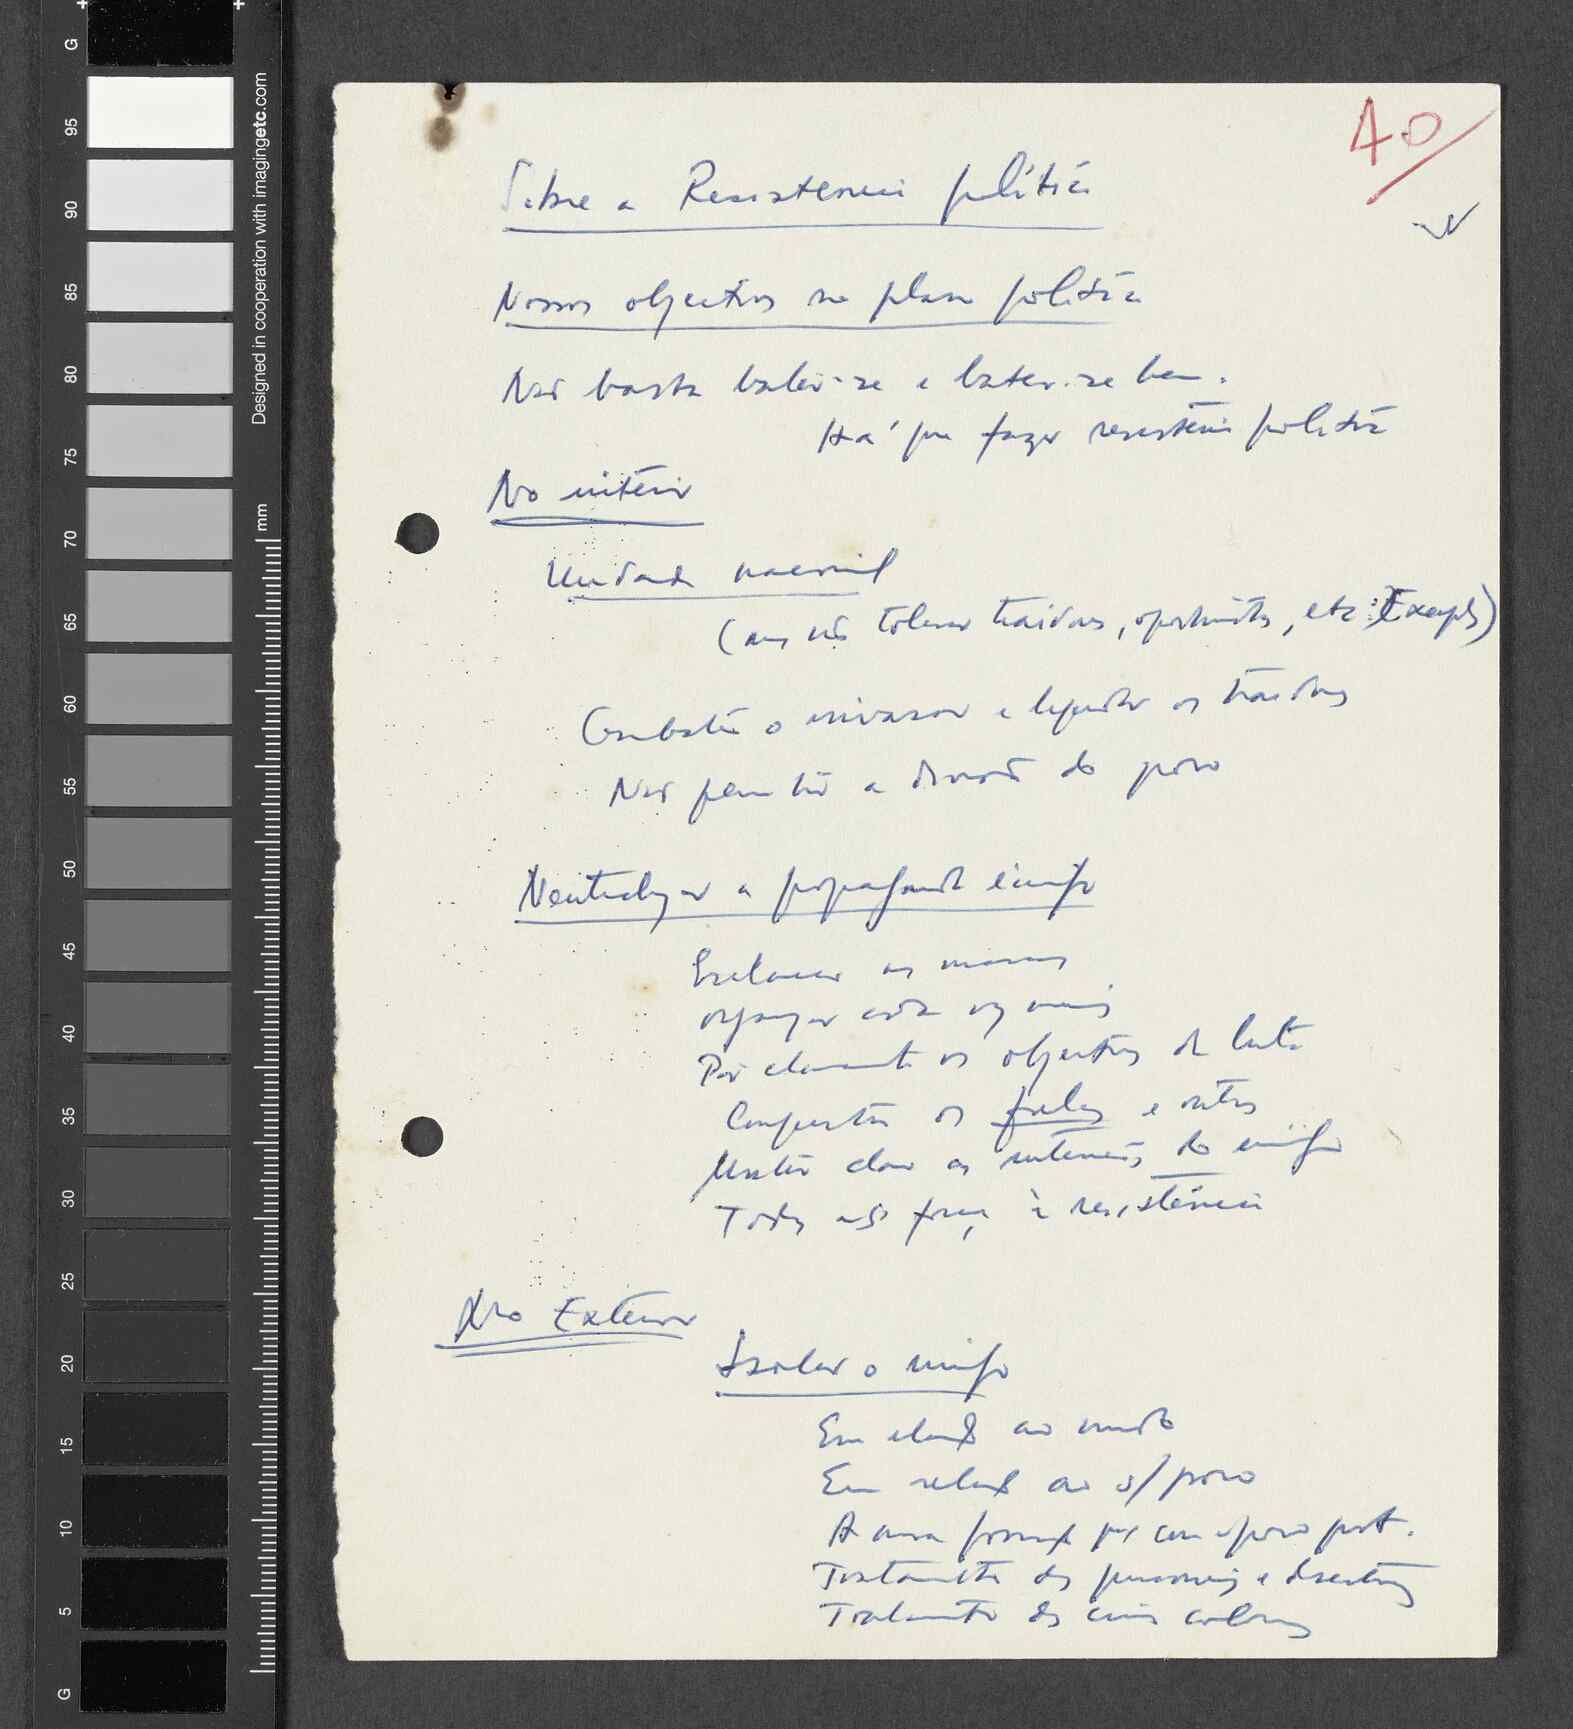 40
Sobre a Resistência política
Nossos objectivos no plano político
Não basta bater-se e bater-se bem.
Há que fazer resistência política
No interior
Unidade nacional
(mas não tolerar traidores, oportunistas, etc. Exemplos)
Combater o invasor e liquidar os traidores
Não permitir a divisão do povo
Neutralizar a propaganda inimiga
Esclarecer as massas
organizar cada vez mais
Pôr claramente os objectivos da luta
os fulas e outros
claro as intenções do inimigo
Todas as forças à resistência
No Exterior
Isolar o inimigo
Em relação ao mundo
Em relação ao s/ povo
A nossa posição para com o povo port.
Tratamento dos prisioneiros e desertores
Tratamento dos civis colonos
Designed in cooperation with imagingetc.com
mm
G 95 90 85 80 75 70 65 60 55 50 45 40 35 30 25 20 15 10 5 G